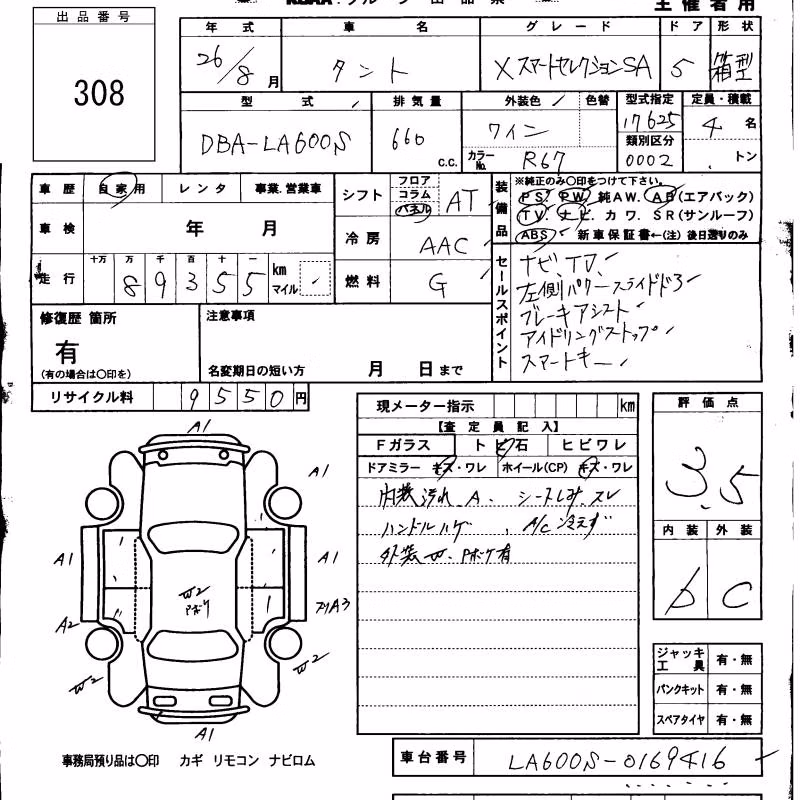 主催者用
出品番号
308
年式 車名 グレード ドア 形状
26/8月 タント XスマートセレクションSA 5 箱型
型式 排気量 外装色 色替 型式指定 定員・積載
DBA-LA600S 660 c.c. ワイン 17625 4名
カラーNo. R67 類別区分 0002 トン
車歴 自家用 レンタ 事業.営業車
シフト フロア コラム パネル AT
車検 年 月
冷房 AAC
走行 十万 万 千 百 十 一
89355 km マイル
燃料 G
装備品 ※純正のみ〇印をつけて下さい。
PS. PW. 純AW. AB(エアバック)
TV. ナビ. カワ. SR(サンルーフ)
ABS 新車保証書←(注)後日渡りのみ
セールスポイント
ナビ、TV、
左側パワースライドドア
ブレーキアシスト
アイドリングストップ
スマートキー
修復歴 箇所
有
(有の場合は〇印を)
注意事項
名変期日の短い方 月 日まで
リサイクル料 9550円
現メーター指示 km
【査定員記入】
Fガラス トビ石 ヒビワレ
ドアミラー キズ・ワレ ホイール(CP) キズ・ワレ
内装汚れ A、シートしみ、スレ
ハンドルハゲ、A/C冷えず
外装W、Pボケ有
評価点
3.5
内装 外装
b C
ジャッキ工具 有・無
パンクキット 有・無
スペアタイヤ 有・無
A1
A1
A1
A1
A2
A3
W2
W2
W2
A1
事務局預り品は〇印 カギ リモコン ナビロム
車台番号 LA600S-0169416